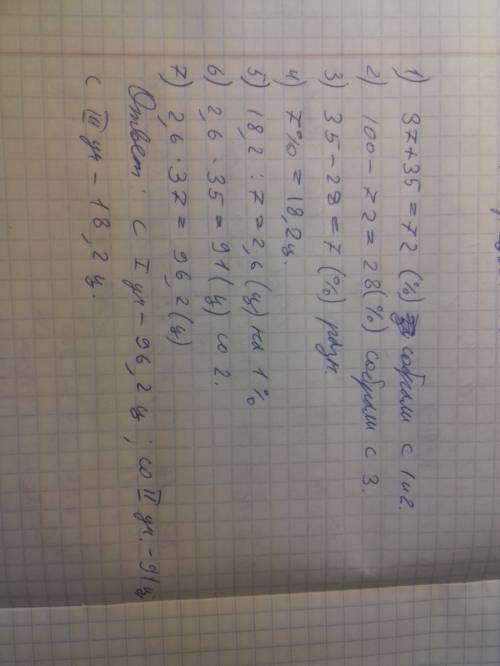 1) 37+35=72 (%) собрали с 1 и 2.
2) 100-72=28(%) собрали с 3.
3) 35-28=7 (%) разн.
4) 7%=18,2ц.
5) 18,2:7=2,6(ц) на 1%
6) 2,6·35=91(ц) со 2.
7) 2,6·37=96,2(ц)
Ответ: с I уч-96,2 ц; со II уч.-91ц
с III уч-18,2 ц.